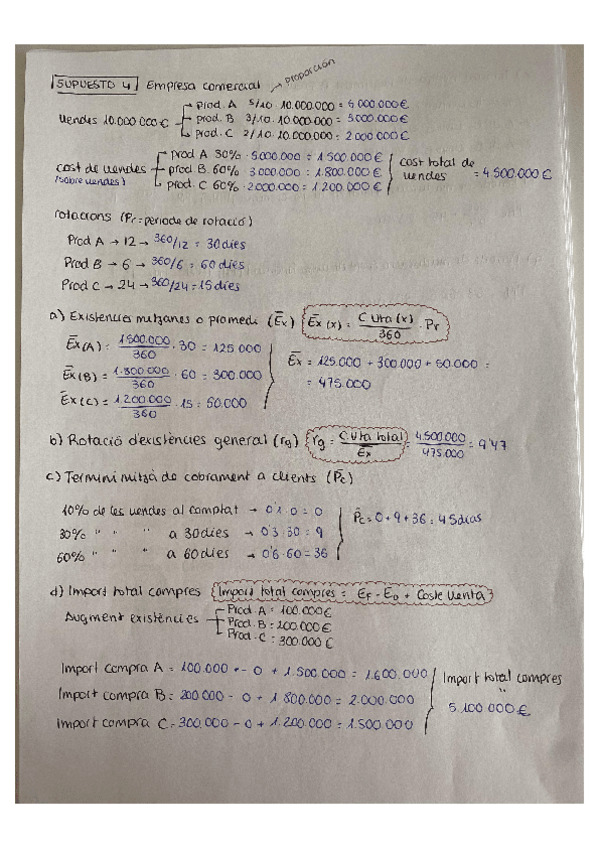 SUPUESTO 4 Empresa comercial → proporción
prod. A 5/10 · 10.000.000 = 5.000.000€
Vendes 10.000.000€ prod. B 3/10 · 10.000.000 = 3.000.000€
prod. C 2/10 · 10.000.000 = 2.000.000€
prod A 30% · 5.000.000 = 1.500.000€
cost de vendes prod. B. 60% 3.000.000 = 1.800.000€ cost total de vendes = 4.500.000€
(sobre vendes) prod. C 60% · 2.000.000 = 1.200.000€
rotacions (Pr = periode de rotació)
Prod A → 12 → 360/12 = 30 dies
Prod B → 6 → 360/6 = 60 dies
Prod C → 24 → 360/24 = 15 dies
a) Existències mitjanes o promedi (Ēx) Ēx(x) = C Vta(x)/360 · Pr
Ēx(A) = 1.500.000/360 · 30 = 125.000
Ēx(B) = 1.800.000/360 · 60 = 300.000
Ēx(C) = 1.200.000/360 · 15 = 50.000
Ēx = 125.000 + 300.000 + 50.000 =
= 475.000
b) Rotació d'existències general (rg) rg = C Vta total/Ēx = 4.500.000/475.000 = 9'47
c) Termini mitjà de cobrament a clients (P̄c)
10% de les vendes al comptat → 0'1·0 = 0
30% " " " a 30 dies → 0'3·30 = 9
60% " " " a 60 dies → 0'6·60 = 36
P̄c = 0+9+36 = 45 dias
d) Import total compres Import total compres = Ef - E0 + Coste Venta
Prod. A = 100.000€
Augment existències Prod. B = 200.000€
Prod. C = 300.000€
Import compra A = 100.000 - 0 + 1.500.000 = 1.600.000
Import compra B = 200.000 - 0 + 1.800.000 = 2.000.000
Import compra C = 300.000 - 0 + 1.200.000 = 1.500.000
Import total compres
"
5.100.000€